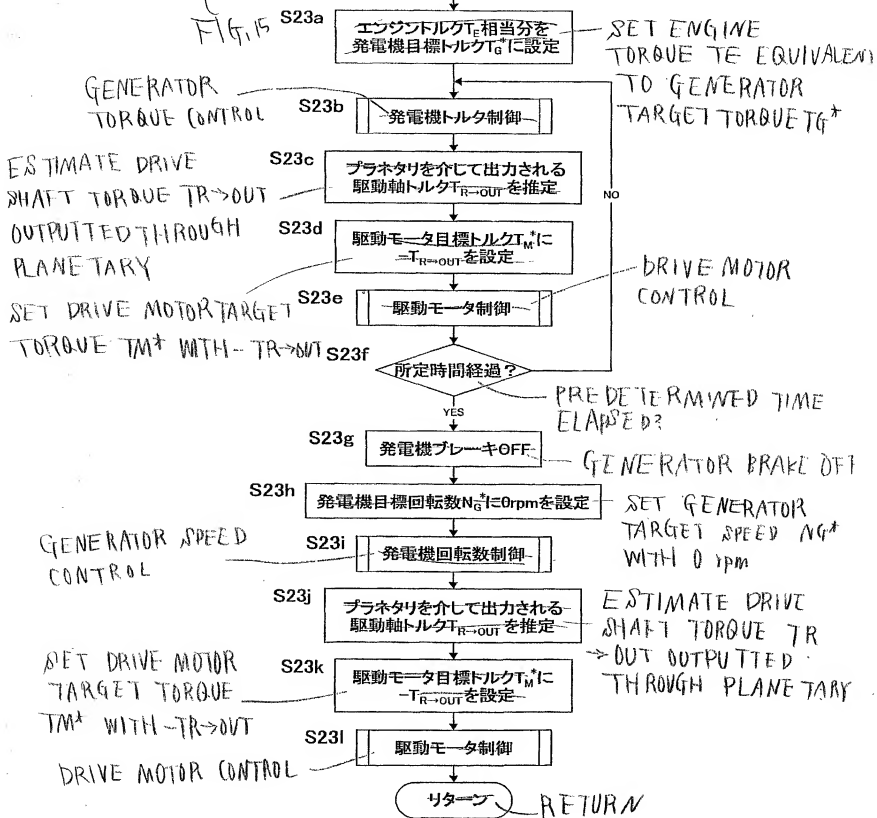 FIG, 15
S23a
エンジントルクTE相当分を
発電機目標トルクTG*に設定
SET ENGINE
TORQUE TE EQUIVALENT
TO GENERATOR
TARGET TORQUE TG*
GENERATOR
TORQUE CONTROL
S23b
発電機トルク制御
ESTIMATE DRIVE
SHAFT TORQUE TR→OUT
OUTPUTTED THROUGH
PLANETARY
S23c
プラネタリを介して出力される
駆動軸トルクTR→OUTを推定
NO
S23d
駆動モータ目標トルクTM*に
-TR→OUTを設定
SET DRIVE MOTOR TARGET
TORQUE TM* WITH -TR→OUT
S23e
駆動モータ制御
DRIVE MOTOR
CONTROL
S23f
所定時間経過?
PREDETERMINED TIME
ELAPSED?
YES
S23g
発電機ブレーキOFF
GENERATOR BRAKE OFF
S23h
発電機目標回転数NG*に0rpmを設定
SET GENERATOR
TARGET SPEED NG*
WITH 0 rpm
GENERATOR SPEED
CONTROL
S23i
発電機回転数制御
S23j
プラネタリを介して出力される
駆動軸トルクTR→OUTを推定
ESTIMATE DRIVE
SHAFT TORQUE TR
→OUT OUTPUTTED
THROUGH PLANETARY
SET DRIVE MOTOR
TARGET TORQUE
TM* WITH -TR→OUT
S23k
駆動モータ目標トルクTM*に
-TR→OUTを設定
S23l
駆動モータ制御
DRIVE MOTOR CONTROL
リターン
RETURN